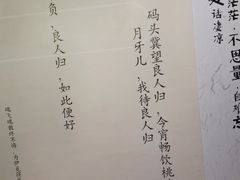 茫茫，不思量，自
话凄凉
码头冀望良人归，今宵畅饮桃
月牙儿，我待良人归
负，良人归，如此便好